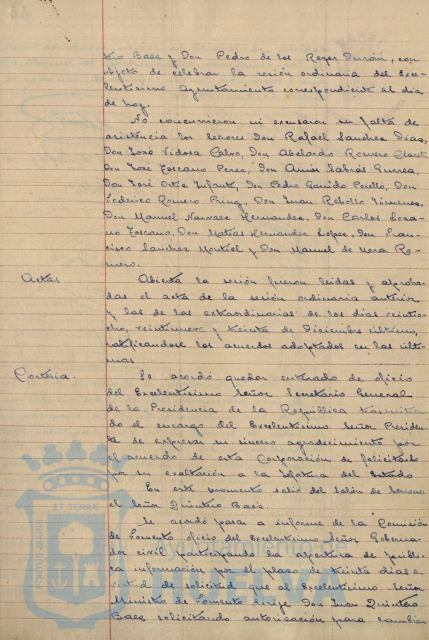 Baez y Don Pedro de los Reyes Durán, con
objeto de celebrar la sesión ordinaria del Exce-
lentísimo Ayuntamiento correspondiente al día
de hoy.
No concurrieron ni excusaron su falta de
asistencia los señores Don Rafael Sanchez Díaz,
Don José Vidosa Calvo, Don Abelardo Romero Claret
Don José Toscano Perez, Don Amós Sabrás Gurrea,
Don José Ortiz Infante, Don Pedro Garrido Perelló, Don
Federico Romero Don Juan Rebollo Jimenez,
Don Manuel Narvaez Hernandez, Don Carlos Loza-
no Toscano, Don Matías Hernandez Lopez, Don Fran-
cisco Sanchez Montiel y Don Manuel de Mora Ro-
mero.
Actas Abierta la sesión fueron leidas y aproba-
das el acta de la sesión ordinaria anterior
y las de las extraordinarias de los días veintio-
cho, veintinueve y treinta de Diciembre último,
ratificandose los acuerdos adoptados en las últi-
mas
Cortesía. Se acordó quedar enterado de oficio
del Excelentísimo Señor Secretario General
de la Presidencia de la República trasmitien-
do el encargo del Excelentísimo Señor Presiden-
te de expresar su sincero agradecimiento por
el acuerdo de esta Corporación de felicitarlo
por su exaltación a la Jefatura del Estado
En este momento salió del salón de sesiones
el Señor Quintero Baez.
Se acordó pasar a informe de la Comisión
de Fomento oficio del Excelentísimo Señor Goberna-
dor civil participando la apertura de públi-
ca información por el plazo de treinta días a
virtud de solicitud que al Excelentísimo Señor
Ministro de Fomento dirige Don Juan Quintero
Baez solicitando autorización para cambiar